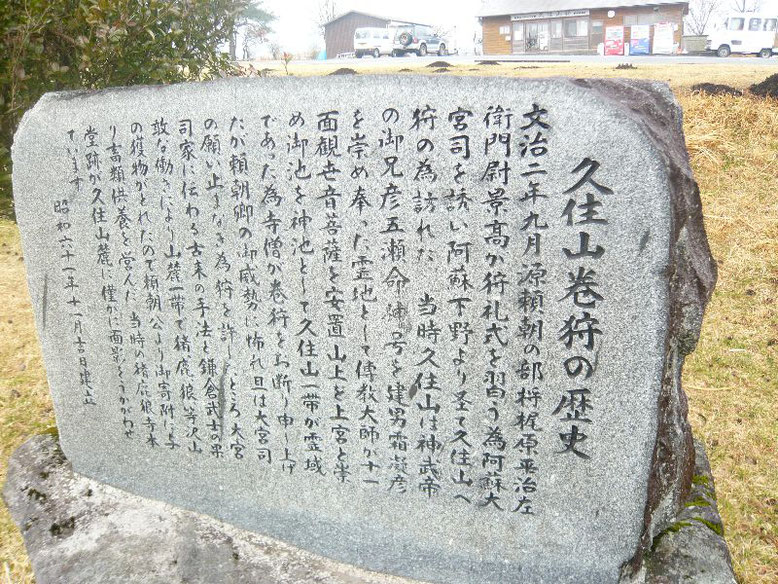 久住山巻狩の歴史
文治二年九月 源頼朝の部将梶原平治左
衛門尉景高が狩礼式を習う為阿蘇大
宮司を誘い阿蘇下野より至て久住山へ
狩の為訪れた 当時久住山は神武帝
の御兄彦五瀬命 号を建男霜凝彦
を崇め奉った霊地として傳教大師が十一
面観世音菩薩を安置 山上を上宮と崇
め御池を神池として久住山一帯が霊域
であった為寺僧が巻狩をお断り申し上げ
たが頼朝卿の御威勢に怖れ且は大宮司
の願い止まなき為狩を許したところ大宮
司家に伝わる古来の手法と鎌倉武士の果
敢な働きにより山麓一帯で猪鹿狼等沢山
の獲物がとれたので頼朝公より御寄附に与
り畜類供養を営んだ 当時の猪鹿狼寺本
堂跡が久住山麓に僅かに面影をうかがわせ
ています
昭和六十一年十一月吉日建立